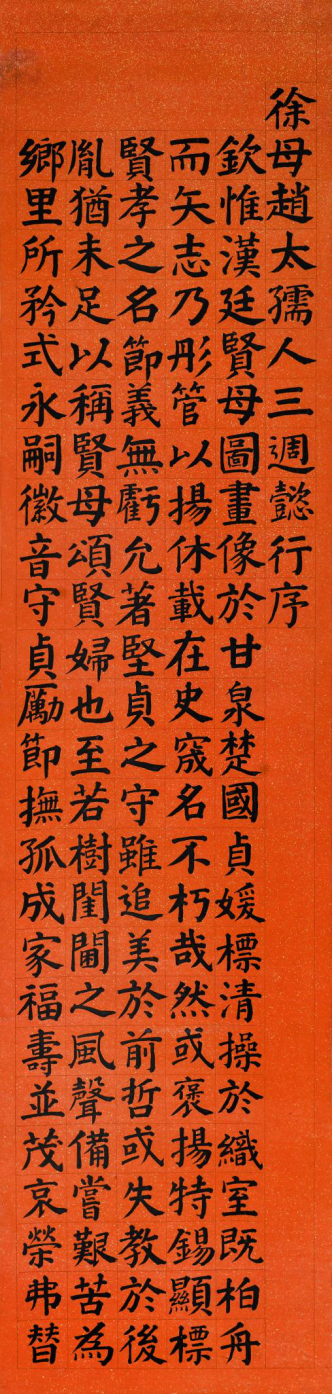 徐母趙太孺人三週懿行序
欽惟漢廷賢母圖畫像於甘泉楚國貞媛標清操於織室既柏舟
而矢志乃彤管以揚休載在史宬名不朽哉然或褒揚特錫顯標
賢孝之名節義無虧允著堅貞之守雖追美於前哲或失教於後
胤猶未足以稱賢母頌賢婦也至若樹閨閫之風聲備嘗艱苦為
鄉里所矜式永嗣徽音守貞勵節撫孤成家福壽並茂哀榮弗替